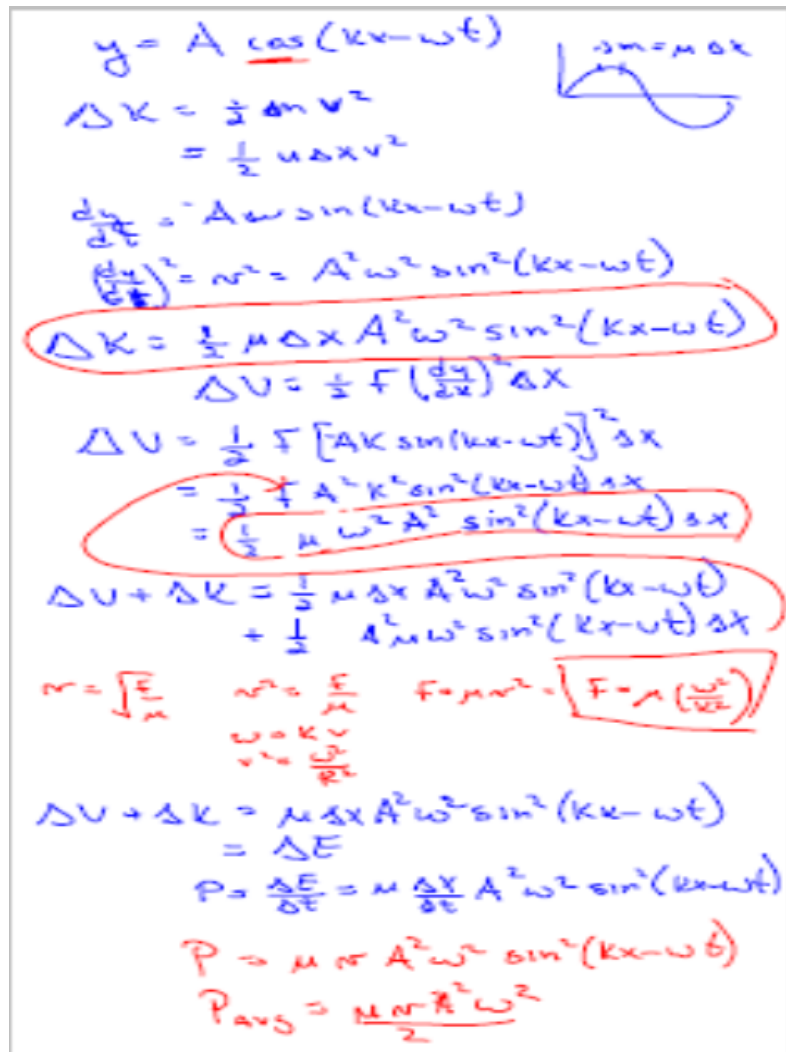 y = A cos(kx-ωt)
Δm = μ Δx
ΔK = ½ Δm v²
= ½ μ Δx v²
dy/dt = -Aω sin(kx-ωt)
(dy/dt)² = v² = A²ω² sin²(kx-ωt)
ΔK = ½ μ Δx A²ω² sin²(kx-ωt)
ΔU = ½ F (dy/dx)² Δx
ΔU = ½ F [-AK sin(kx-ωt)]² Δx
= ½ F A² k² sin²(kx-ωt) Δx
= ½ μ ω² A² sin²(kx-ωt) Δx
ΔU + ΔK = ½ μ Δx A²ω² sin²(kx-ωt)
+ ½ A² μω² sin²(kx-ωt) Δx
v = √F/μ v² = F/μ F = μv² = F = μ(ω²/k²)
ω = kv
v² = ω²/k²
ΔU + ΔK = μ Δx A²ω² sin²(kx-ωt)
= ΔE
P = ΔE/Δt = μ Δx/Δt A²ω² sin²(kx-ωt)
P = μ v A²ω² sin²(kx-ωt)
Pavg = μ v A²ω²/2